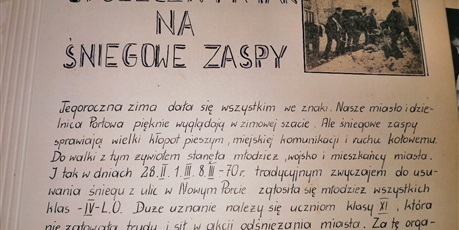 NA
ŚNIEGOWE ZASPY
Tegoroczna zima dała się wszystkim we znaki. Nasze miasto i dziel-
nica Portowa pięknie wyglądają w zimowej szacie. Ale śniegowe zaspy
sprawiają wielki kłopot pieszym, miejskiej komunikacji i ruchu kołowemu.
Do walki z tym żywiołem stanęła młodzież, wojsko i mieszkańcy miasta.
I tak w dniach 28.II. 1.III, 8.III-70r. tradycyjnym zwyczajem do usu-
wania śniegu z ulic w Nowym Porcie zgłosiła się młodzież wszystkich
klas -IV-L.O. Duże uznanie należy się uczniom klasy XI, która
nie żałowała trudu i sił w akcji odśnieżania miasta. Za tę orga-